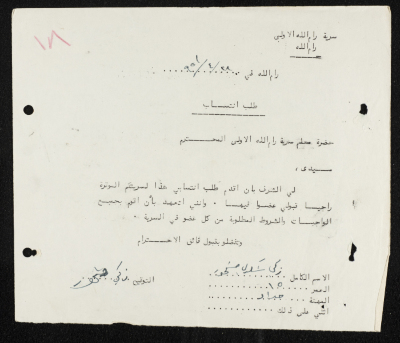 ١٨
سرية رام الله الاولى
رام الله
رام الله في
طلب انتساب
حضرة معلم سرية رام الله الاولى المحترم
سيدي ،
لي الشرف بان اقدم طلب انتسابي هذا لسريتكم الموقرة
راجيا قبولي عضوا فيها . وانني اتعهد بأن اقوم بجميع
الواجبات والشروط المطلوبة من كل عضو في السرية .
وتفضلو بقبول فائق الاحترام
الاسم الكامل زكي
العمر ١٥
المهنة
اثني على ذلك
التوقيع زكي